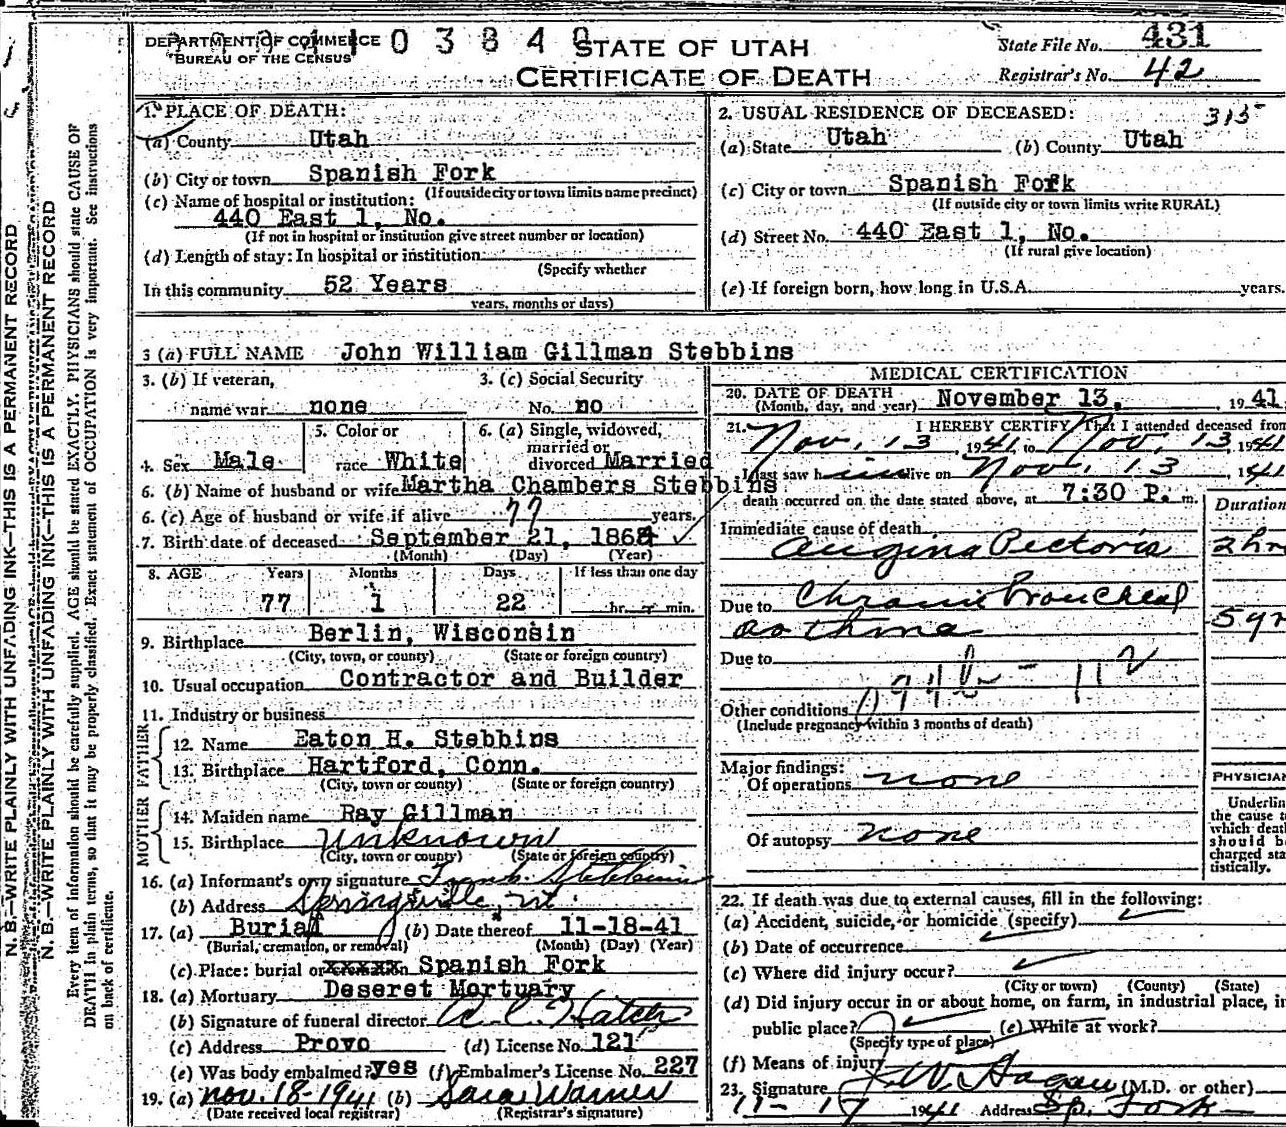 N. B.—WRITE PLAINLY WITH UNFADING INK—THIS IS A PERMANENT RECORD
N. B.—WRITE PLAINLY WITH UNFADING INK—THIS IS A PERMANENT RECORD
Every item of information should be carefully supplied. AGE should be stated EXACTLY. PHYSICIANS should state CAUSE OF
DEATH in plain terms, so that it may be properly classified. Exact statement of OCCUPATION is very important. See instructions
on back of certificate.
DEPARTMENT OF COMMERCE
BUREAU OF THE CENSUS
0 3 8 4 0
STATE OF UTAH
CERTIFICATE OF DEATH
State File No. 431
Registrar's No. 42
1. PLACE OF DEATH:
(a) County Utah
(b) City or town Spanish Fork
(If outside city or town limits name precinct)
(c) Name of hospital or institution:
440 East 1, No.
(If not in hospital or institution give street number or location)
(d) Length of stay: In hospital or institution
(Specify whether
In this community 52 Years
years, months or days)
2. USUAL RESIDENCE OF DECEASED: 315
(a) State Utah (b) County Utah
(c) City or town Spanish Fork
(If outside city or town limits write RURAL)
(d) Street No. 440 East 1, No.
(If rural give location)
(e) If foreign born, how long in U.S.A. years.
3 (a) FULL NAME John William Gillman Stebbins
3. (b) If veteran, 3. (c) Social Security
name war none No. no
4. Sex Male 5. Color or race White 6. (a) Single, widowed, married or divorced Married
6. (b) Name of husband or wife Martha Chambers Stebbins
6. (c) Age of husband or wife if alive 77 years
7. Birth date of deceased September 21, 1864
(Month) (Day) (Year)
8. AGE Years Months Days If less than one day
77 1 22 hr. or min.
9. Birthplace Berlin, Wisconsin
(City, town, or county) (State or foreign country)
10. Usual occupation Contractor and Builder
11. Industry or business
FATHER
12. Name Eaton H. Stebbins
13. Birthplace Hartford, Conn.
(City, town or county) (State or foreign country)
MOTHER
14. Maiden name Ray Gillman
15. Birthplace Unknown
(City, town or county) (State or foreign country)
16. (a) Informant's own signature Stebbins
(b) Address Springville, Ut.
17. (a) Burial (b) Date thereof 11-18-41
(Burial, cremation, or removal) (Month) (Day) (Year)
(c) Place: burial or xxxxxx Spanish Fork
18. (a) Mortuary Deseret Mortuary
(b) Signature of funeral director A. C. Hatch
(c) Address Provo (d) License No. 121
(e) Was body embalmed? yes (f) Embalmer's License No. 227
19. (a) Nov. 18-1941 (b) Sara Warner
(Date received local registrar) (Registrar's signature)
MEDICAL CERTIFICATION
20. DATE OF DEATH
(Month, day, and year) November 13, 1941
21. I HEREBY CERTIFY That I attended deceased from
Nov. 13 1941 to Nov. 13 1941
I last saw him alive on Nov. 13 1941
death occurred on the date stated above, at 7:30 P. m.
Duration
Immediate cause of death
Angina Pectoris 2 hr
Due to Chronic Broncheal
asthma 5 yr
Due to
94b - 112
Other conditions
(Include pregnancy within 3 months of death)
Major findings:
Of operations none
Of autopsy none
PHYSICIAN
Underlin
the cause t
which deat
should b
charged sta
tistically.
22. If death was due to external causes, fill in the following:
(a) Accident, suicide, or homicide (specify)
(b) Date of occurrence
(c) Where did injury occur?
(City or town) (County) (State)
(d) Did injury occur in or about home, on farm, in industrial place, in
public place? (e) While at work?
(Specify type of place)
(f) Means of injury
23. Signature J. W. Hagan (M.D. or other)
11-17 1941 Address Sp. Fork